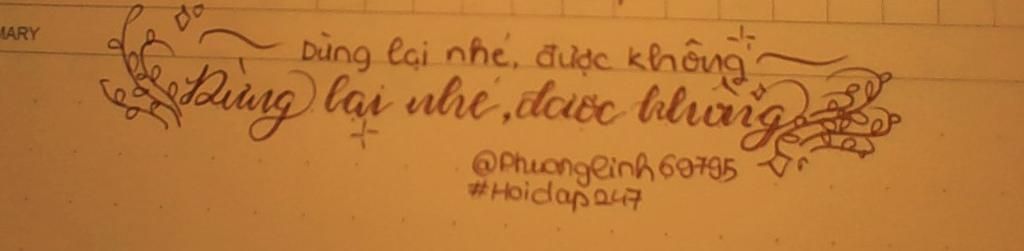 MARY
Dừng lại nhé, được không
Dừng lại nhé, được không
@Phuonglinh69795
#Hoidap247